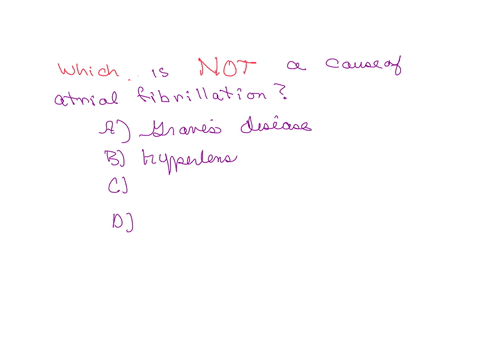 Which is NOT a cause of
atrial fibrillation?
A) Graves disease
B) Hypertens
C)
D)